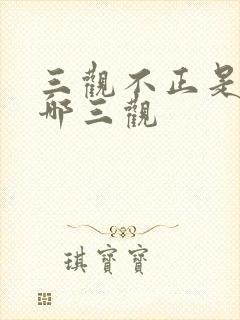 三觀不正是
哪三觀
琪寶寶